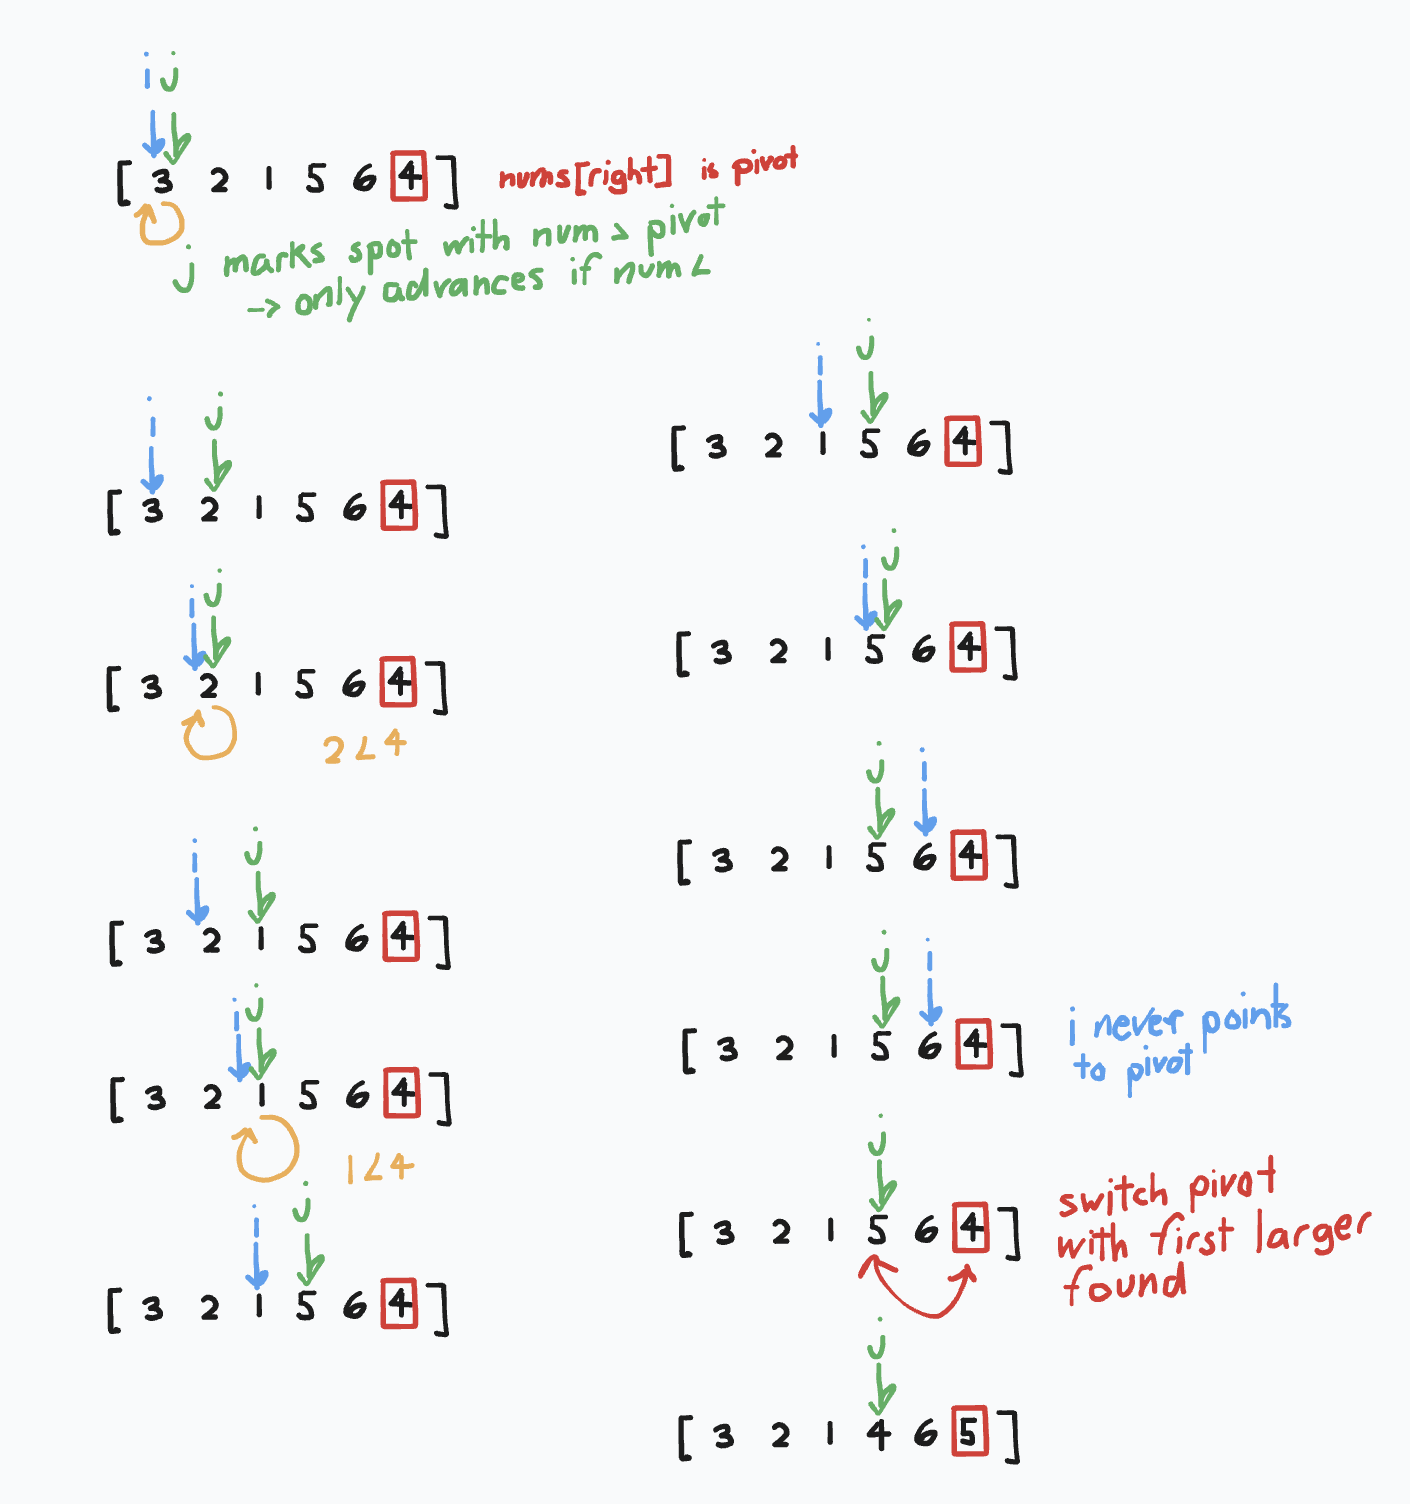 i j
[ 3 2 1 5 6 4 ] nums[right] is pivot
j marks spot with num > pivot
→ only advances if num <
i j
[ 3 2 1 5 6 4 ]
i j
[ 3 2 1 5 6 4 ]
2 < 4
i j
[ 3 2 1 5 6 4 ]
i j
[ 3 2 1 5 6 4 ]
1 < 4
i j
[ 3 2 1 5 6 4 ]
i j
[ 3 2 1 5 6 4 ]
i j
[ 3 2 1 5 6 4 ]
j i
[ 3 2 1 5 6 4 ]
j i
[ 3 2 1 5 6 4 ]
i never points
to pivot
j
[ 3 2 1 5 6 4 ]
switch pivot
with first larger
found
j
[ 3 2 1 4 6 5 ]